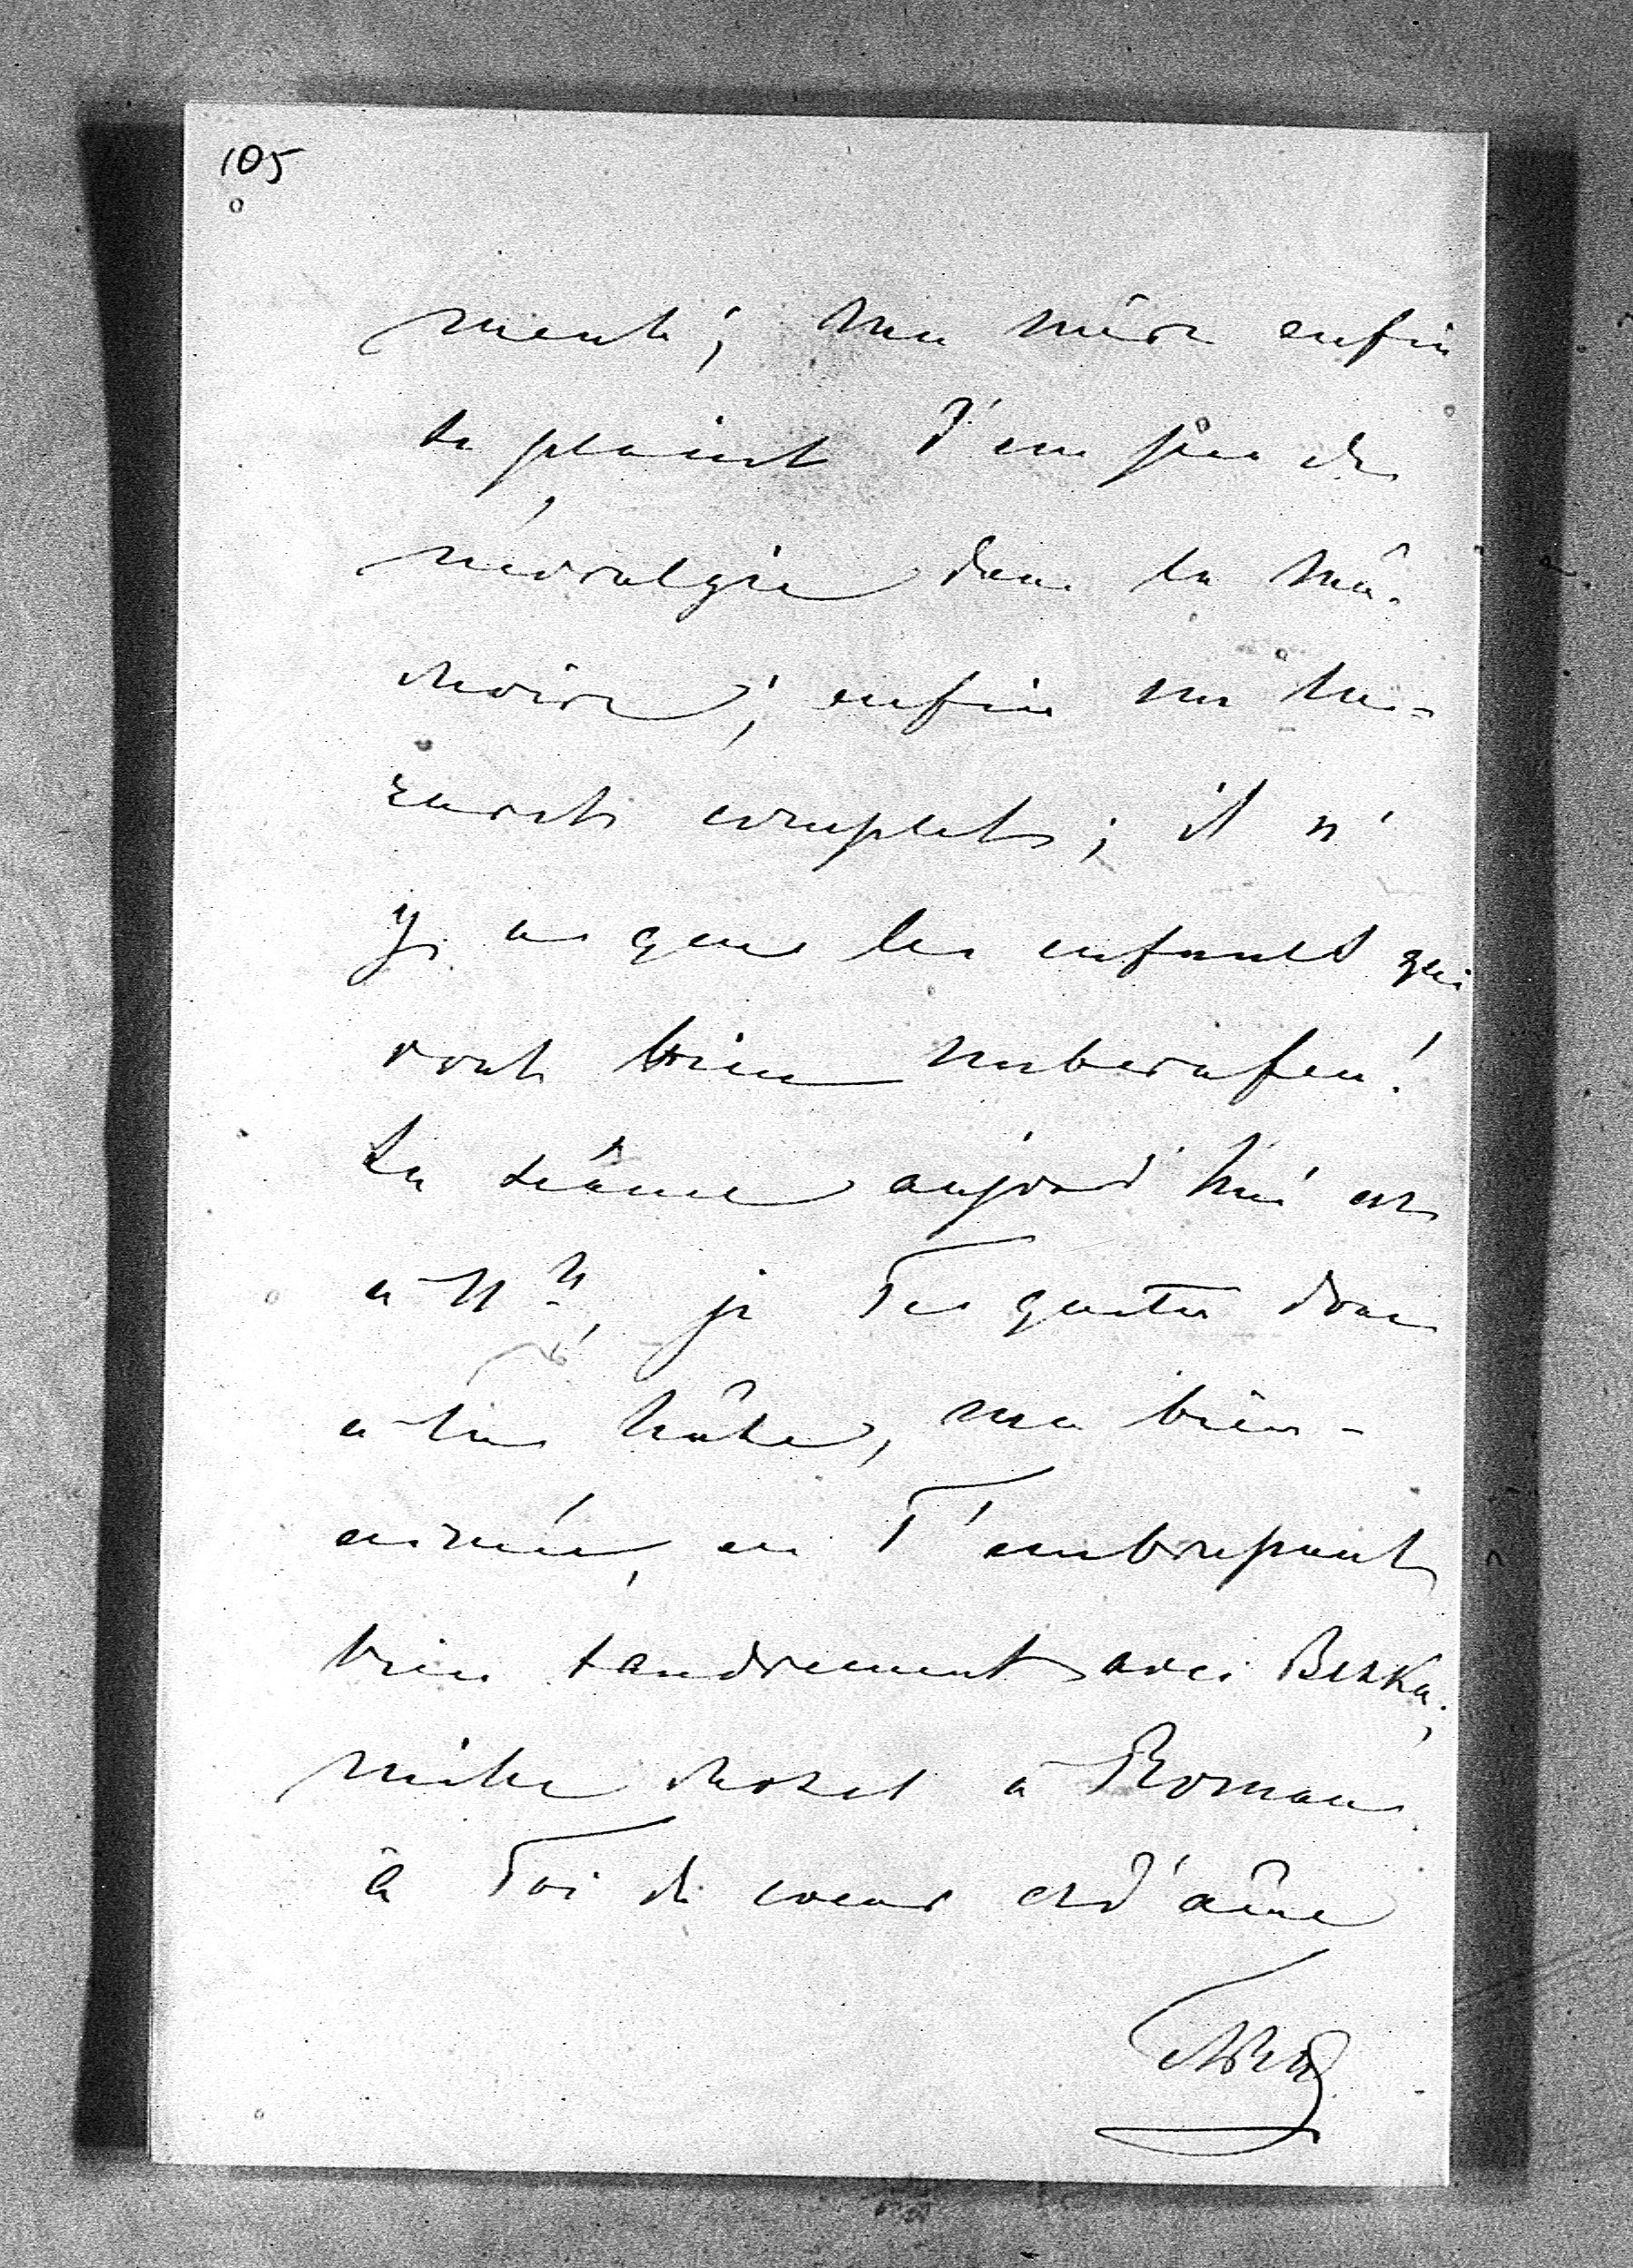 105
ment; ma mère enfin
se plaint d'un peu de
névralgie dans la mâ-
choire; enfin un la-
zareth complet; il n'
y a que les enfants qui
vont bien unberufen!
La séance aujourd'hui est
à 11 h, je Te quitte donc
à la hâte, ma bien-
aimée, en T'embrassant
bien tendrement avec Bezka,
mille choses à Roman.
à Toi de coeur et d'âme